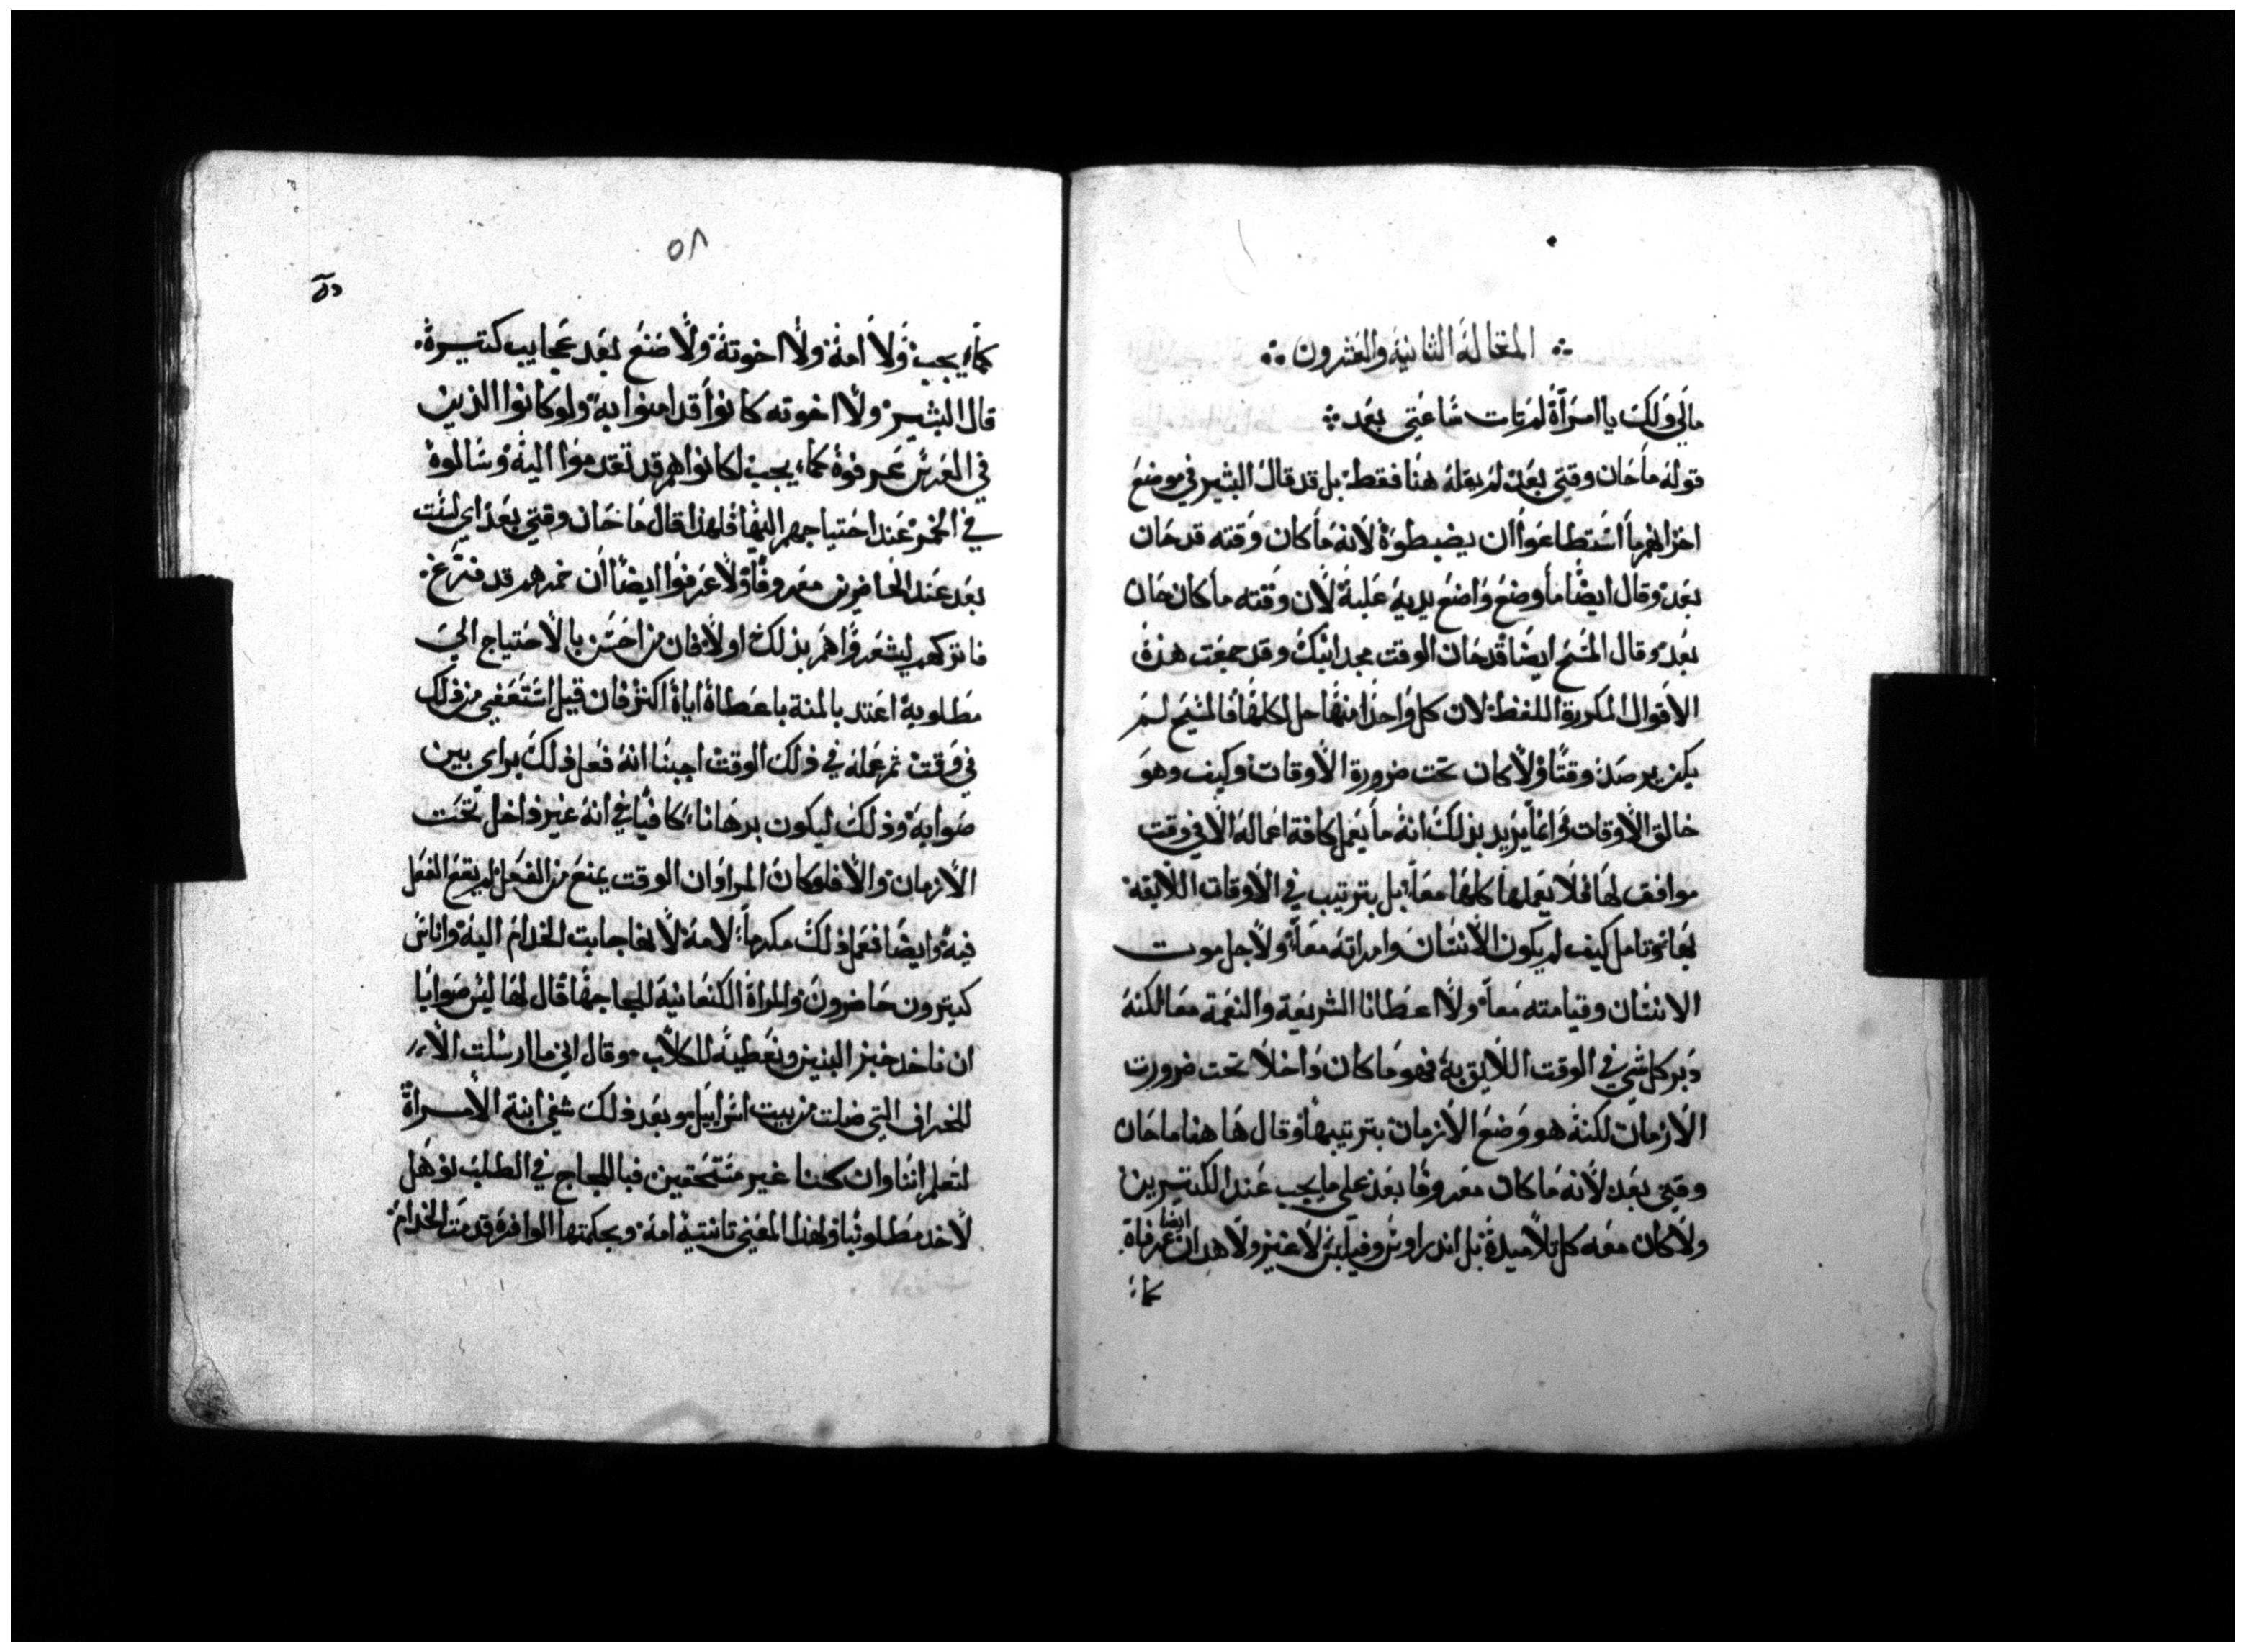 المقالة الثانية والعشرون
مالي ولك يا امراة لم تات ساعتي بعد
قوله ما حان وقتي بعد لم يقله هنا فقط بل قد قال البشير في موضع
اخر انهم ما استطاعوا ان يضبطوه لانه ما كان وقته قد حان
بعد وقال ايضا ما وضع واضع يديه عليه لان وقته ما كان حان
بعد وقال المسيح ايضا قد حان الوقت مجد ابنك وقد جمعت هذه
الاقوال المكررة اللفظ لان كل واحدا منها حل كلها فالمسيح لم
يكن يرصد وقتا ولا كان تحت ضرورة الاوقات وكيف وهو
خالق الاوقات وانما يريد بذلك انه ما يعمل كافة اعماله الا في وقت
موافق لها فلا يعملها كلها معا بل بترتيب في الاوقات اللايقه
بها تامل كيف لم يكون الانسان وامراته معا ولا جل موت
الانسان وقيامته معا ولا اعطانا الشريعة والنعمة معا لكنه
دبر كل شي في الوقت اللايق به فهو ما كان داخلا تحت ضرورت
الازمان لكنه هو وضع الازمان بترتيبها وقال ها هنا ما حان
وقتي بعد لانه ما كان معروفا بعد علي ما يجب عند الكتيرين
ولا كان معه كل تلاميدة بل اندراوس وفيلبس لا غير ولا هدان ايضا عرفاه
كما
٥٨
كما يجب ولا امه ولا اخوته ولا صنع بعد عجايب كتيرة
قال البشير ولا اخوته كانوا قد امنوا به ولو كانوا الذين
في العرس عرفوه كما يجب لكانوا هم قد تقدموا اليه وسالوه
في الخمر عند احتياجهم اليها فلهذا قال ما حان وقتي بعد اي لست
بعد عند الحاضرين معروفا ولا عرفوا ايضا ان خمرهم قد فرغ
فاتركهم ليشعروا هم بذلك اولا فان من احسن بالاحتياج الي
مطلوبه اعتد بالمنة باعطاه اياه اكتر فان قيل استعفي من ذلك
في وقت ثم عمله في ذلك الوقت اجبنا انه فعل ذلك براي بين
صوابه وذلك ليكون برهانا كافيا في انه غير داخل تحت
الازمان والا فلو كان المراد ان الوقت يمنع من الفعل لم يقع الفعل
فيه وايضا فعل ذلك مكرما لامه لانها جابت الخدام اليه واناس
كيترون حاضرون والمراة الكنعانية للجاجها قال لها ليس صوابا
ان ناخد خبز البنين ونعطيه للكلاب وقال اني ما ارسلت الا
للخراف التي ضلت من بيت اسراييل وبعد ذلك شفي ابنة الامراة
لتعلم اننا وان كنا غير مستحقين فباللجاج في الطلب نوهل
لاخد مطلوبنا ولهذا المعني تانتيه امه وبحكمتها الوافرة قدمت الخدام